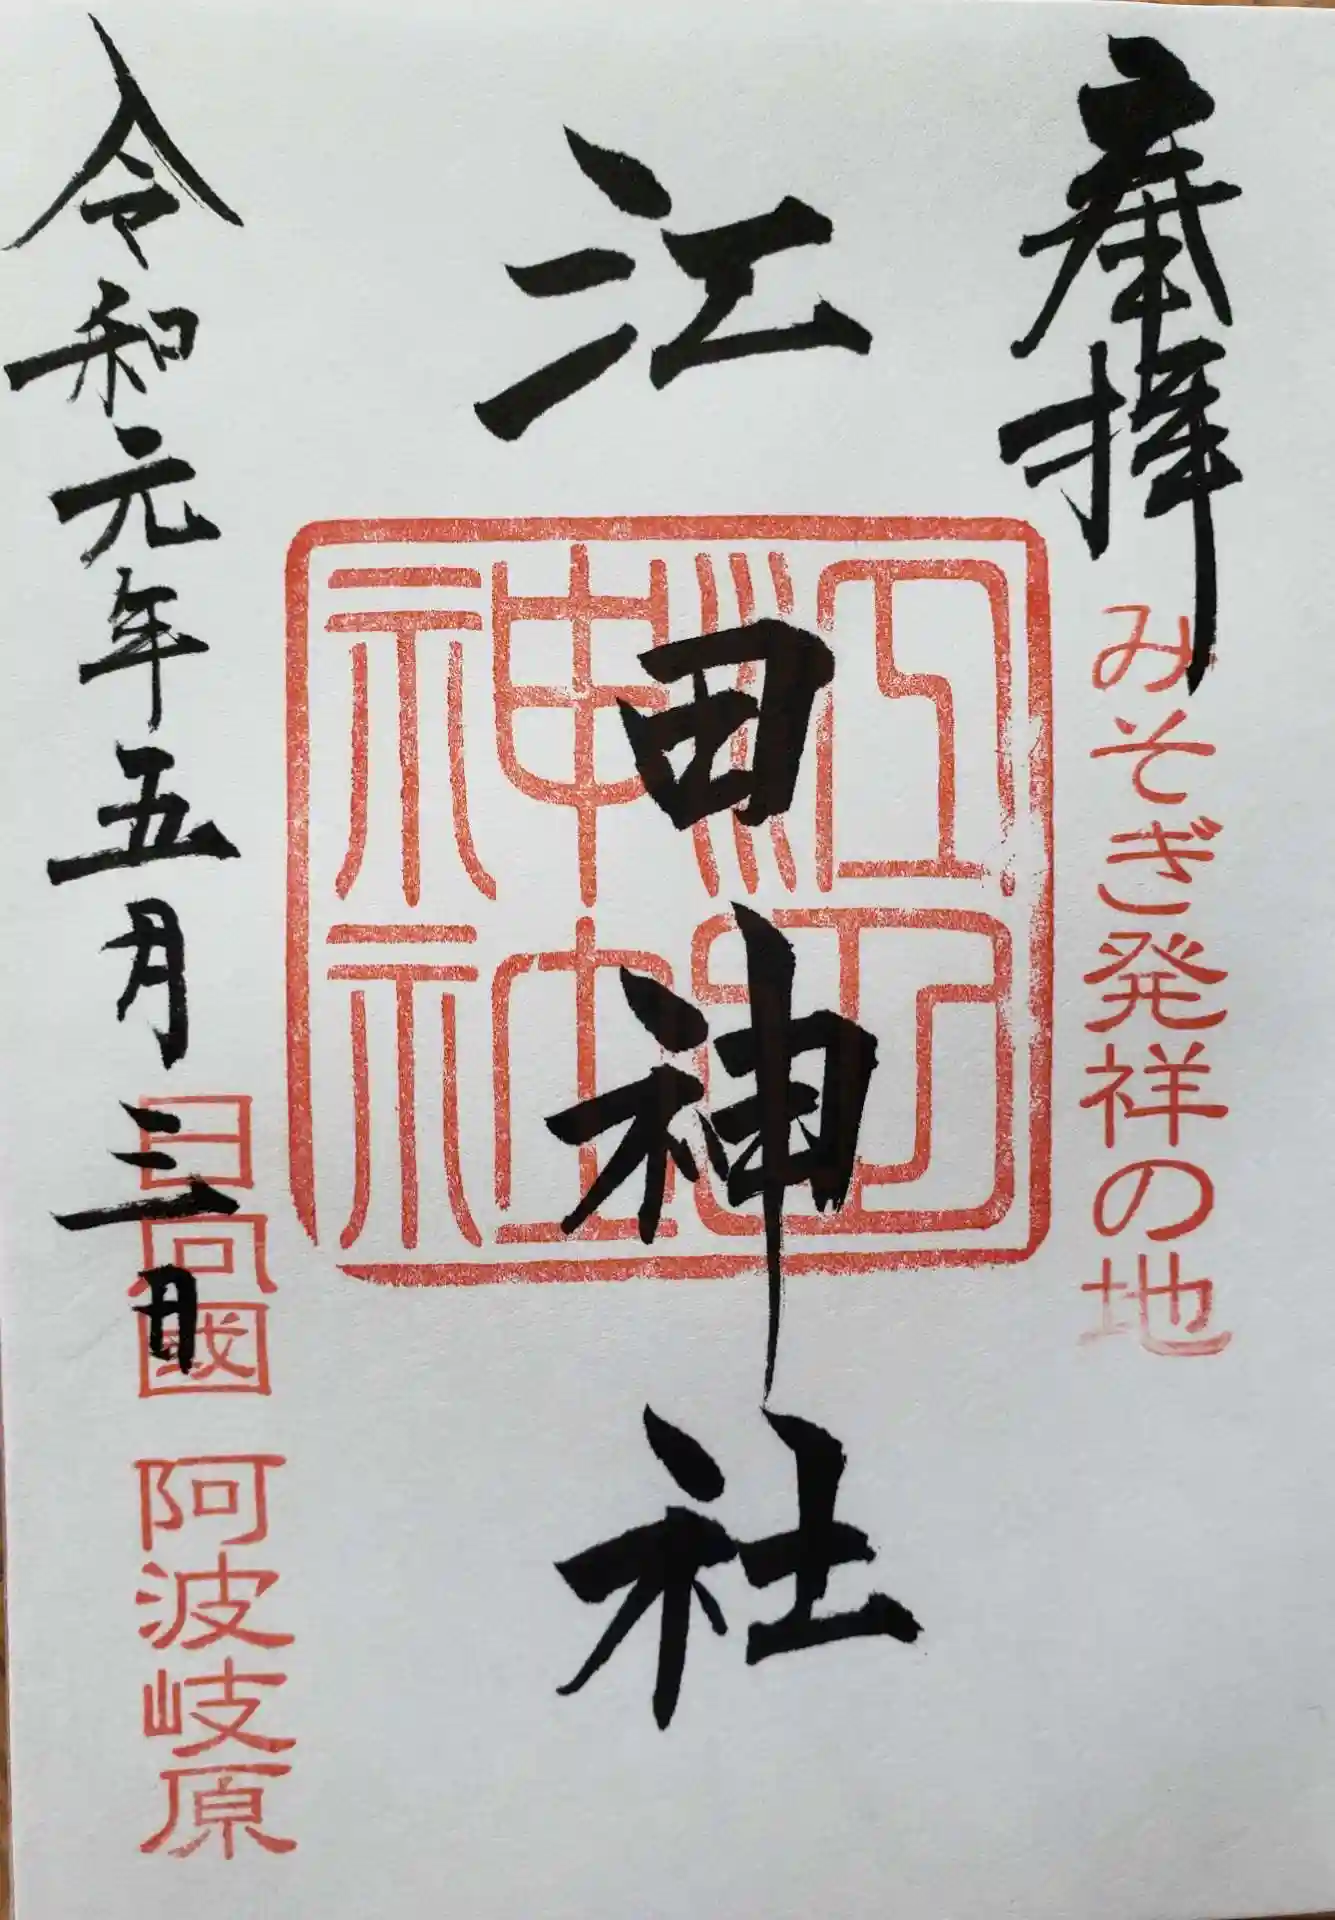 奉拝
みそぎ発祥の地
江田神社
令和元年五月三日
日向國 阿波岐原